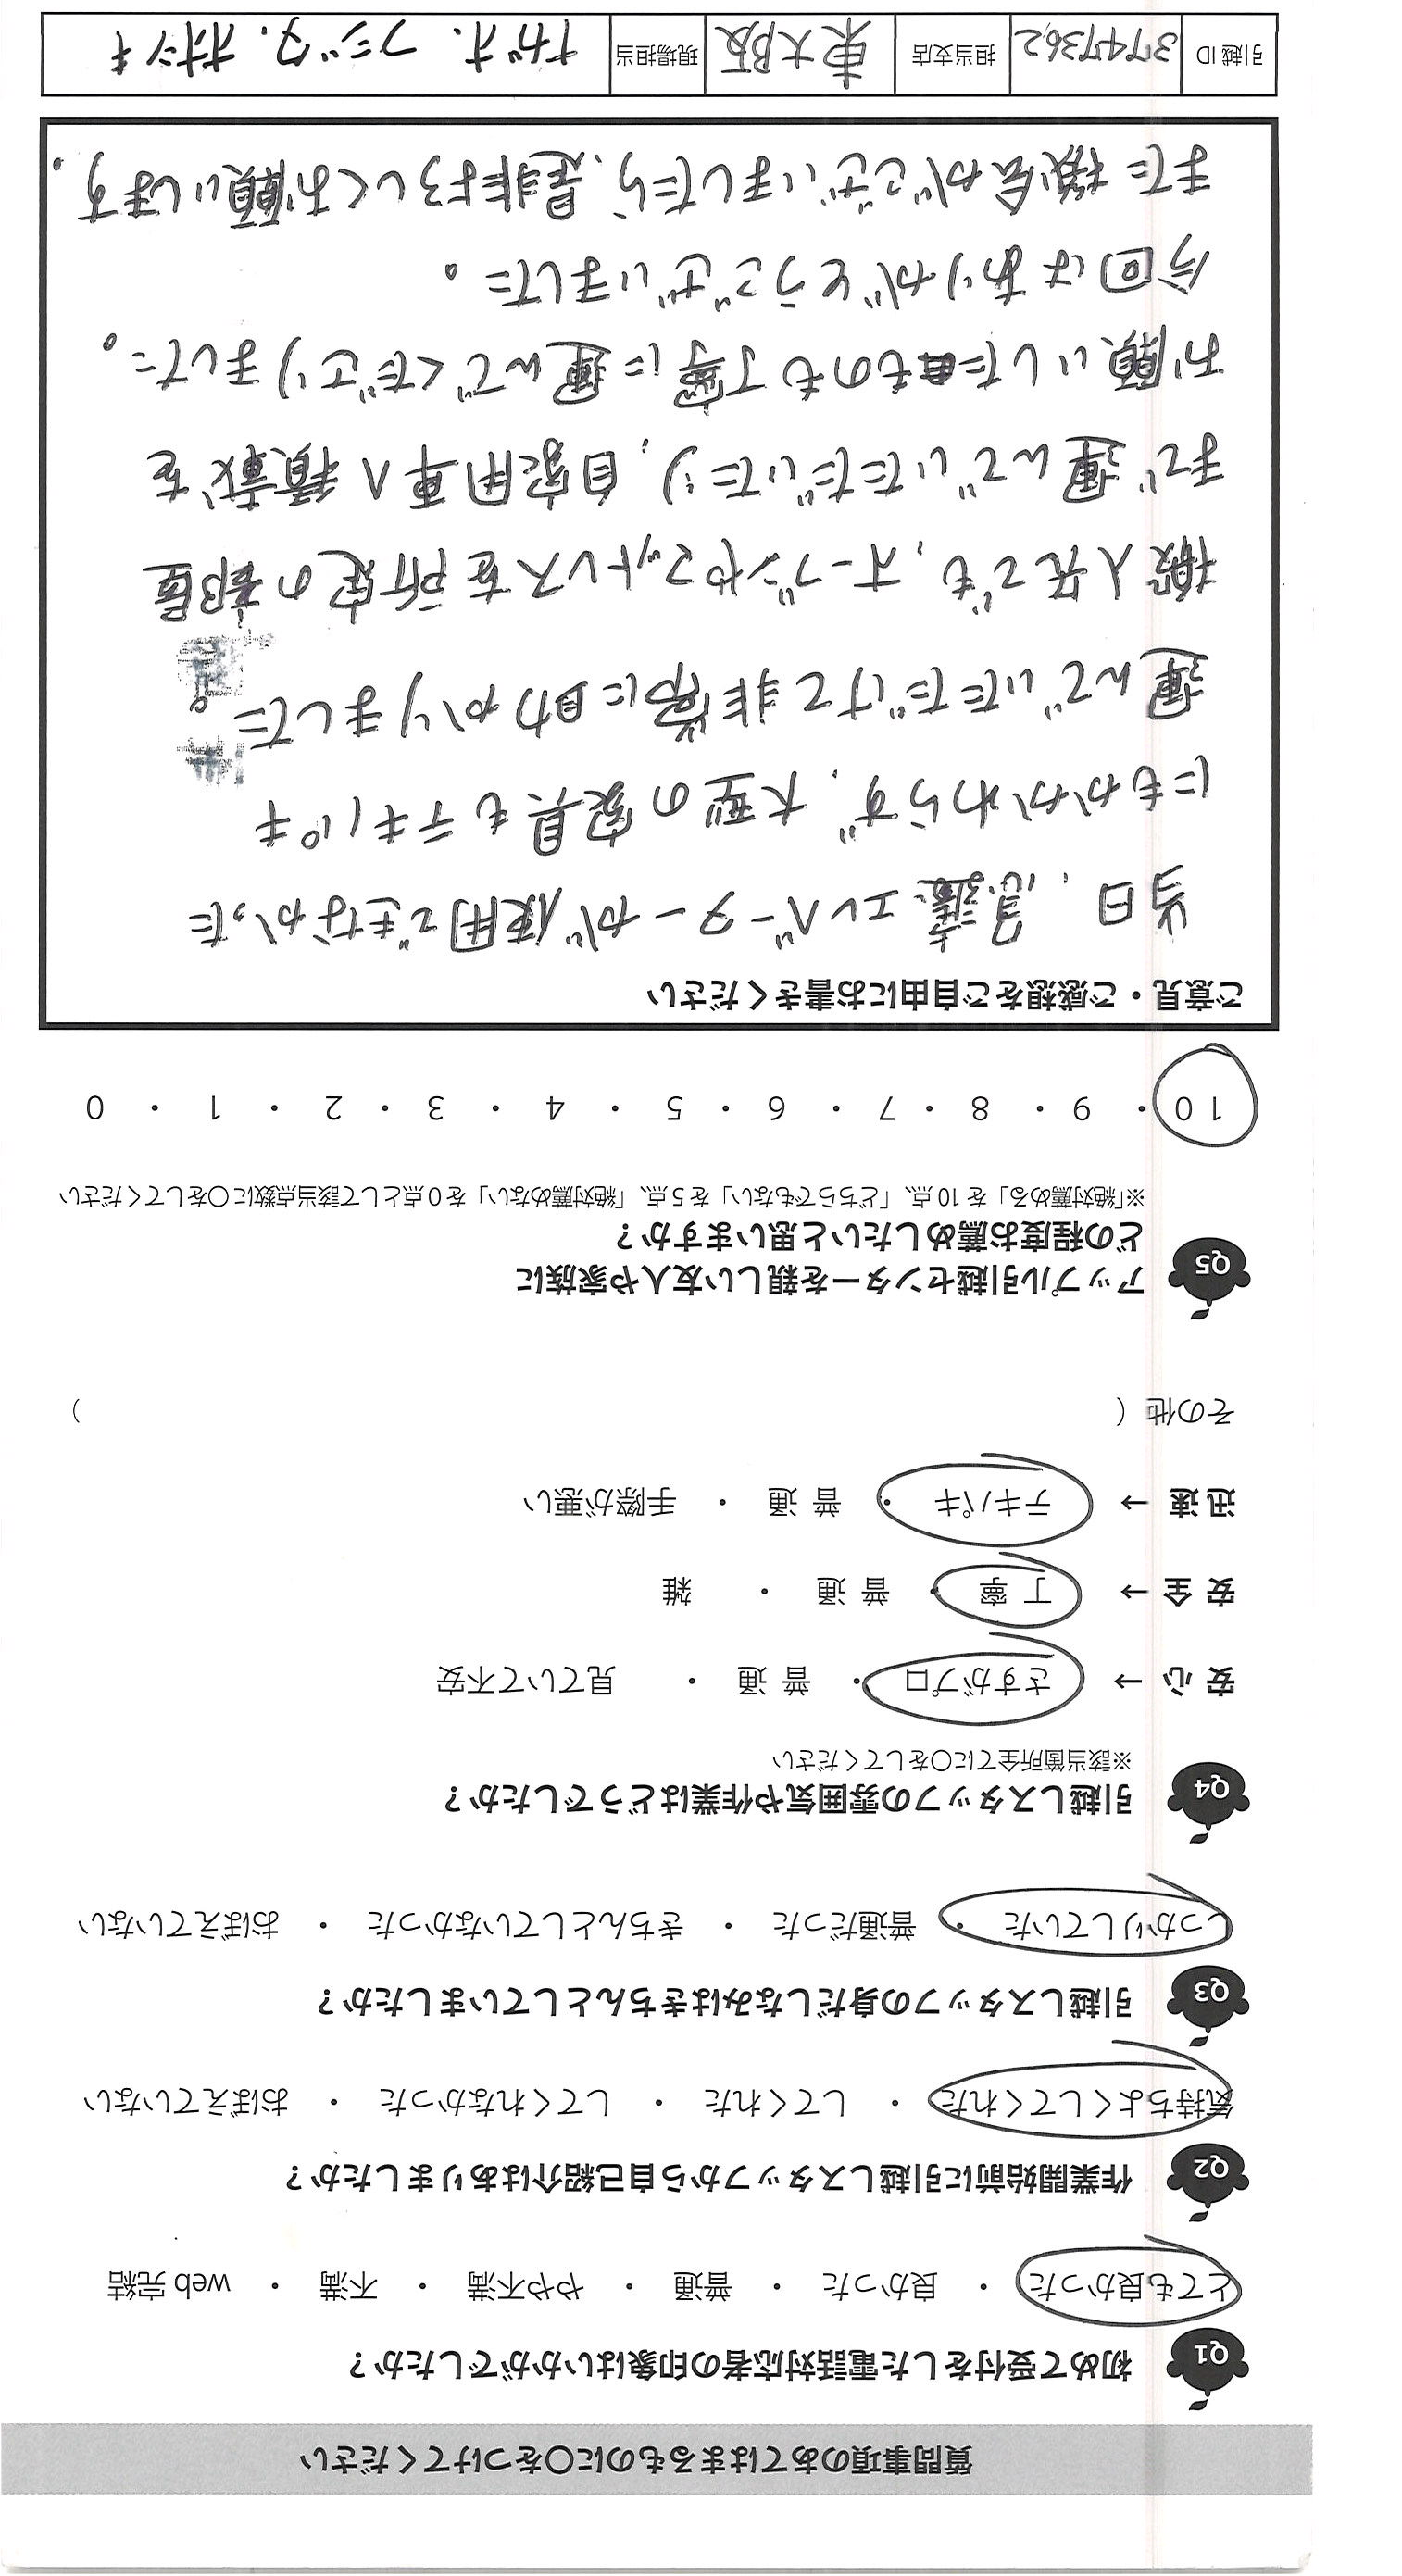 質問事項のあてはまるものに〇をつけてください
Q1 初めて受付をした電話対応者の印象はいかがでしたか？
とても良かった ・ 良かった ・ 普通 ・ やや不満 ・ 不満 ・ web 完結
Q2 作業開始前に引越しスタッフから自己紹介はありましたか？
気持ちよくしてくれた ・ してくれた ・ してくれなかった ・ おぼえていない
Q3 引越しスタッフの身だしなみはきちんとしていましたか？
しっかりしていた ・ 普通だった ・ きちんとしていなかった ・ おぼえていない
Q4 引越しスタッフの雰囲気や作業はどうでしたか？
※該当箇所全てに〇をしてください
安 心 → さすがプロ ・ 普 通 ・ 見ていて不安
安 全 → 丁 寧 ・ 普 通 ・ 雑
迅 速 → テキパキ ・ 普 通 ・ 手際が悪い
その他（ ）
Q5 アップル引越センターを親しい友人や家族に
どの程度お薦めしたいと思いますか？
※「絶対薦める」を 10 点、「どちらでもない」を 5 点、「絶対薦めない」を 0 点として該当点数に〇をしてください
10 ・ 9 ・ 8 ・ 7 ・ 6 ・ 5 ・ 4 ・ 3 ・ 2 ・ 1 ・ 0
ご意見・ご感想をご自由にお書きください
当日、急遽エレベーターが使用できなかった
にもかかわらず、大型の家具もテキパキ
運んでいただけて非常に助かりました。
搬入先でも、オーブンやマットレスを所定の部屋
まで運んでいただいたり、自家用車へ積載を
お願いしたものも丁寧に運んでくださりました。
今回はありがとうございました。
また機会がございましたら、是非よろしくお願いします。
引越 ID 3747362 担当支店 東大阪 現場担当 ナガオ. フジタ. オオシキ